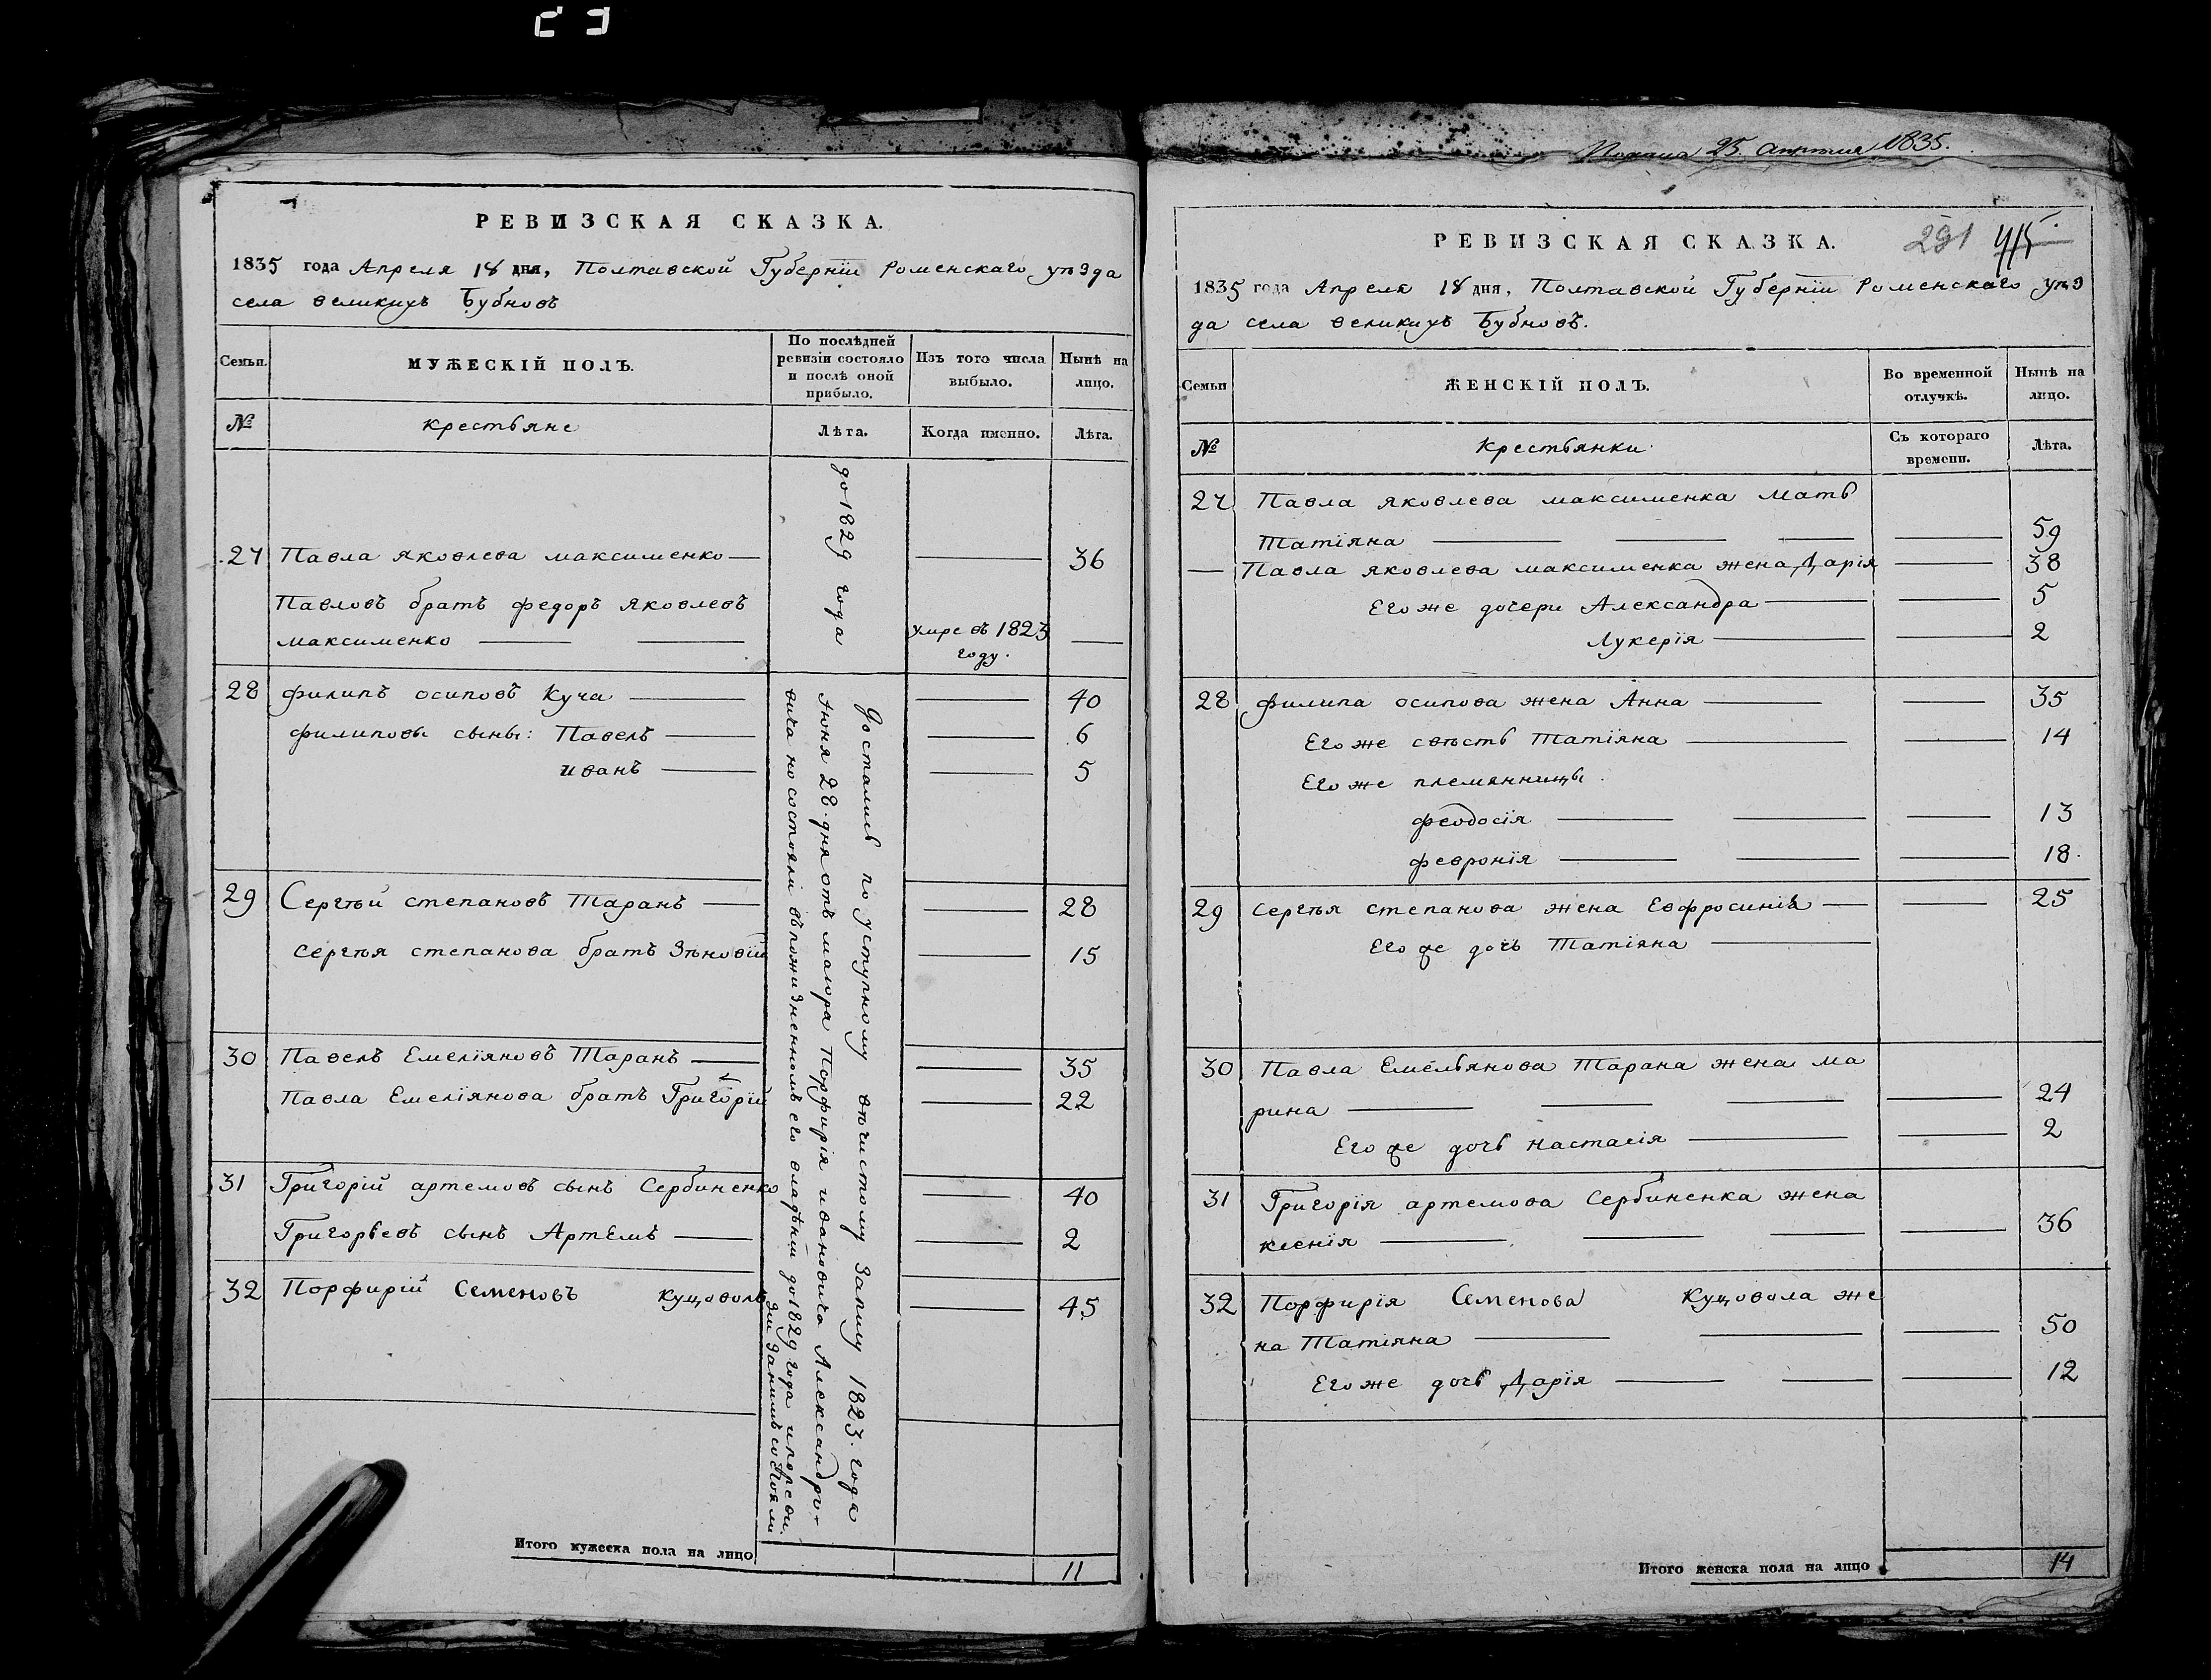 РЕВИЗСКАЯ СКАЗКА.
1835 года Апреля 18 дня, Полтавской Губернїи Роменскаго уѣзда
села великихъ Бубновъ
Семьи.
МУЖЕСКІЙ ПОЛЪ.
По послѣдней ревизіи состояло и послѣ оной прибыло.
Изъ того числа выбыло.
Нынѣ на лицо.
№
крестьяне
Лѣта.
Когда именно.
Лѣта.
до 1829 года
27 Павла яковлева максименко — 36
Павловъ братъ федоръ яковлевъ
максименко умре въ 1823
году.
28 филипъ осиповъ Куча — 40
филиповы сыны: Павелъ — 6
иванъ — 5
29 Сергѣй степановъ Таранъ — 28
сергѣя степанова братъ Зѣновїй 15
30 Павелъ Емелїяновъ Таранъ — 35
Павла Емелїянова братъ Григорїй 22
31 Григорїй артемовъ сынъ Сербиненко 40
Григорьевъ сынъ Артемъ — 2
32 Порфирїй Семеновъ куцоволъ 45
Достались по уступному вѣчистому запису 1823. года
июня 28. дня отъ маиора Порфирія ивановича Александро-
вича но состояли въ пожизненномъ его владѣнїи до 1829 года и по реви.
зїи за нимъ состояли
Итого мужеска пола на лицо 11
25. апреля 1835.
РЕВИЗСКАЯ СКАЗКА.
291
1835 года Апреля 18 дня, Полтавской Губернїи Роменскаго уѣз
да села великихъ Бубновъ.
Семьи
ЖЕНСКІЙ ПОЛЪ.
Во временной отлучкѣ.
Нынѣ на лицо.
№
Крестьянки
Съ котораго времени.
Лѣта.
27 Павла яковлева максименка мать
Татїяна — 59
— Павла яковлева максименка жена Дарїя — 38
Его же дочери Александра — 5
Лукерїя — 2
28 филипа осипова жена Анна — 35
Его же свѣсть Татїяна — 14
Его же племянницы
феодосїя — 13
февронїя — 18.
29 сергѣя степанова жена Евфросинїя — 25
Его же дочь Татїяна —
30 Павла Емельянова Тарана жена ма
рина — 24
Его же дочь настасїя — 2
31 Григорїя артемова Сербиненка жена
ксенїя — 36
32 Порфирїя Семенова Куцовола же
на Татїяна — 50
Его же дочь Дарїя — 12
Итого женска пола на лицо 14